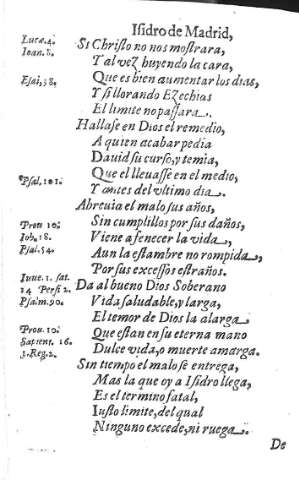 Isidro de Madrid,
Luca. 4.
Ioan. 8.
Esai. 38.
Psal. 101.
Prou 10.
Iob. 18.
Psal. 54.
Iuue. 1. sat.
14 Persi 2.
Psalm. 90.
Prou. 10.
Sapient. 16.
1. Reg. 2.
Si Christo no nos mostrara,
Tal vez huyendo la cara,
Que es bien aumentar los dias,
Y si llorando Ezechias
El limite no passara.
Hallase en Dios el remedio,
A quien acabar pedia
Dauid su curso, y temia,
Que el lleuasse en el medio,
Y antes del vltimo dia.
Abreuia el malo sus años,
Sin cumplillos por sus daños,
Viene a fenecer la vida,
Aun la estambre no rompida,
Por sus excessos estraños.
Da al bueno Dios Soberano
Vida saludable, y larga,
El temor de Dios la alarga
Que estan en su eterna mano
Dulce vida, o muerte amarga.
Sin tiempo el malo se entrega,
Mas la que oy a Isidro llega,
Es el termino fatal,
Iusto limite, del qual
Ninguno excede, ni ruega.
De